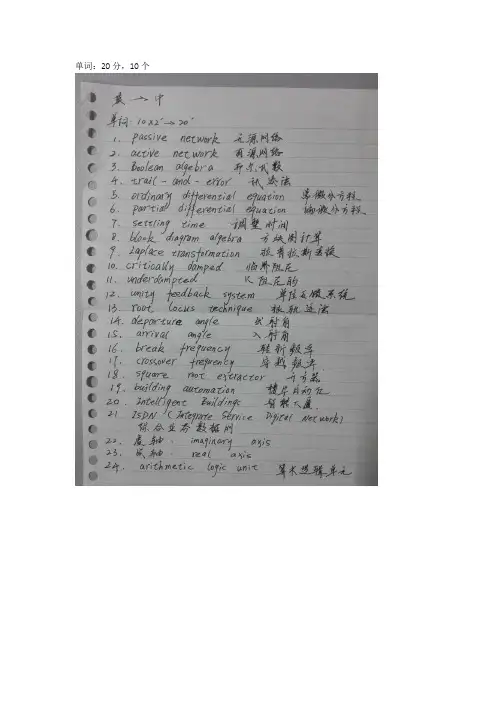 单词：20分，10个
英→中
单词：10×2'→20'
1. passive network 无源网络
2. active network 有源网络
3. Boolean algebra 布尔代数
4. trail-and-error 试差法
5. ordinary differential equation 常微分方程
6. partial differential equation 偏微分方程
7. settling time 调整时间
8. block diagram algebra 方块图计算
9. Laplace transformation 拉普拉斯变换
10. critically damped 临界阻尼
11. underdampted 欠阻尼的
12. unity feedback system 单位反馈系统
13. root locus technique 根轨迹法
14. departure angle 出射角
15. arrival angle 入射角
16. break frequency 转折频率
17. crossover frequency 穿越频率
18. square root extractor 开方器
19. building automation 楼宇自动化
20. Intelligent Buildings 智能大厦
21 ISDN (Integrate Service Digital Network)
综合业务数据网
22. 虚轴. imaginary axis
23. 实轴. real axis
24. arithmetic logic unit 算术逻辑单元